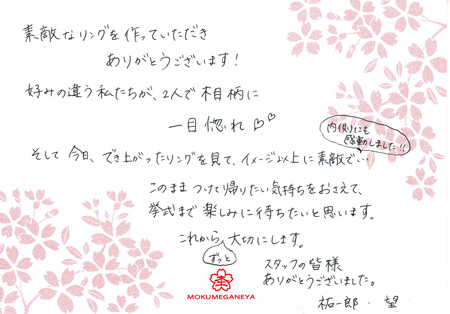 素敵なリングを作っていただき
ありがとうございます！
好みの違う私たちが、2人で柾柄に
一目惚れ♡♡
そして今日、でき上がったリングを見て、イメージ以上に素敵で…
内側にも
感動しました!!
このままつけて帰りたい気持ちをおさえて、
挙式まで楽しみに待ちたいと思います。
これからずっと大切にします。
スタッフの皆様
ありがとうございました。
祐一郎・望
MOKUMEGANEYA